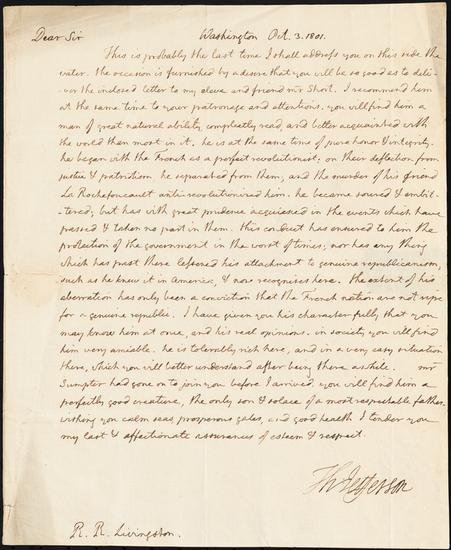 Dear Sir Washington Oct. 3. 1801.
This is probably the last time I shall address you on this side the
water. the occasion is furnished by a desire that you will be so good as to deli-
ver the inclosed letter to my eleve and friend mr Short. I recommend him
at the same time to your patronage and attentions. you will find him a
man of great natural ability, compleatly read, and better acquainted with
the world than most in it. he is at the same time of pure honor & integrity.
he began with the French as a perfect revolutionist: on their deflection from
justice & patriotism he separated from them, and the murder of his friend
La Rochefoucault anti-revolutionised him. he became soured & embit-
tered; but has with great prudence acquiesced in the events which have
passed & taken no part in them. this conduct has ensured to him the
protection of the government in the worst of times; nor has any thing
which has past there lessened his attachment to genuine republicanism,
such as he knew it in America, & now recognises here. the extent of his
aberration has only been a conviction that the French nation are not ripe
for a genuine republic. I have given you his character fully that you
may know him at once, and his real opinions. in society you will find
him very amiable. he is tolerably rich here, and in a very easy situation
there, which you will better understand after being there awhile. mr
Sumpter had gone on to join you before I arrived. you will find him a
perfectly good creature, the only son & solace of a most respectable father.
wishing you calm seas, prosperous gales, and good health I tender you
my last & affectionate assurances of esteem & respect.
Th: Jefferson
R. R. Livingston.